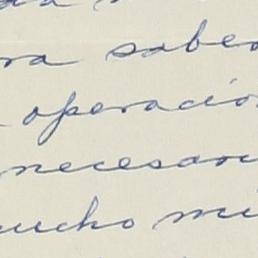 ra saber
operación
necesari
mucho mi